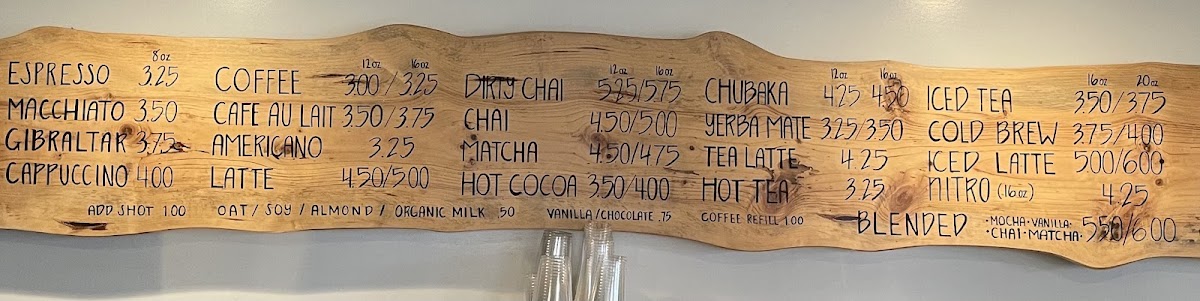 8oz
ESPRESSO 3.25
MACCHIATO 3.50
GIBRALTAR 3.75
CAPPUCCINO 4.00
12oz 16oz
COFFEE 3.00/3.25
CAFE AU LAIT 3.50/3.75
AMERICANO 3.25
LATTE 4.50/5.00
12oz 16oz
DIRTY CHAI 5.25/5.75
CHAI 4.50/5.00
MATCHA 4.50/4.75
HOT COCOA 3.50/4.00
12oz 16oz
CHUBAKA 4.25 4.50
YERBA MATE 3.25/3.50
TEA LATTE 4.25
HOT TEA 3.25
16oz 20oz
ICED TEA 3.50/3.75
COLD BREW 3.75/4.00
ICED LATTE 5.00/6.00
NITRO (16oz) 4.25
ADD SHOT 1.00 OAT/SOY/ALMOND/ORGANIC MILK .50 VANILLA/CHOCOLATE .75 COFFEE REFILL 1.00
BLENDED ·MOCHA·VANILLA· ·CHAI·MATCHA· 5.50/6.00